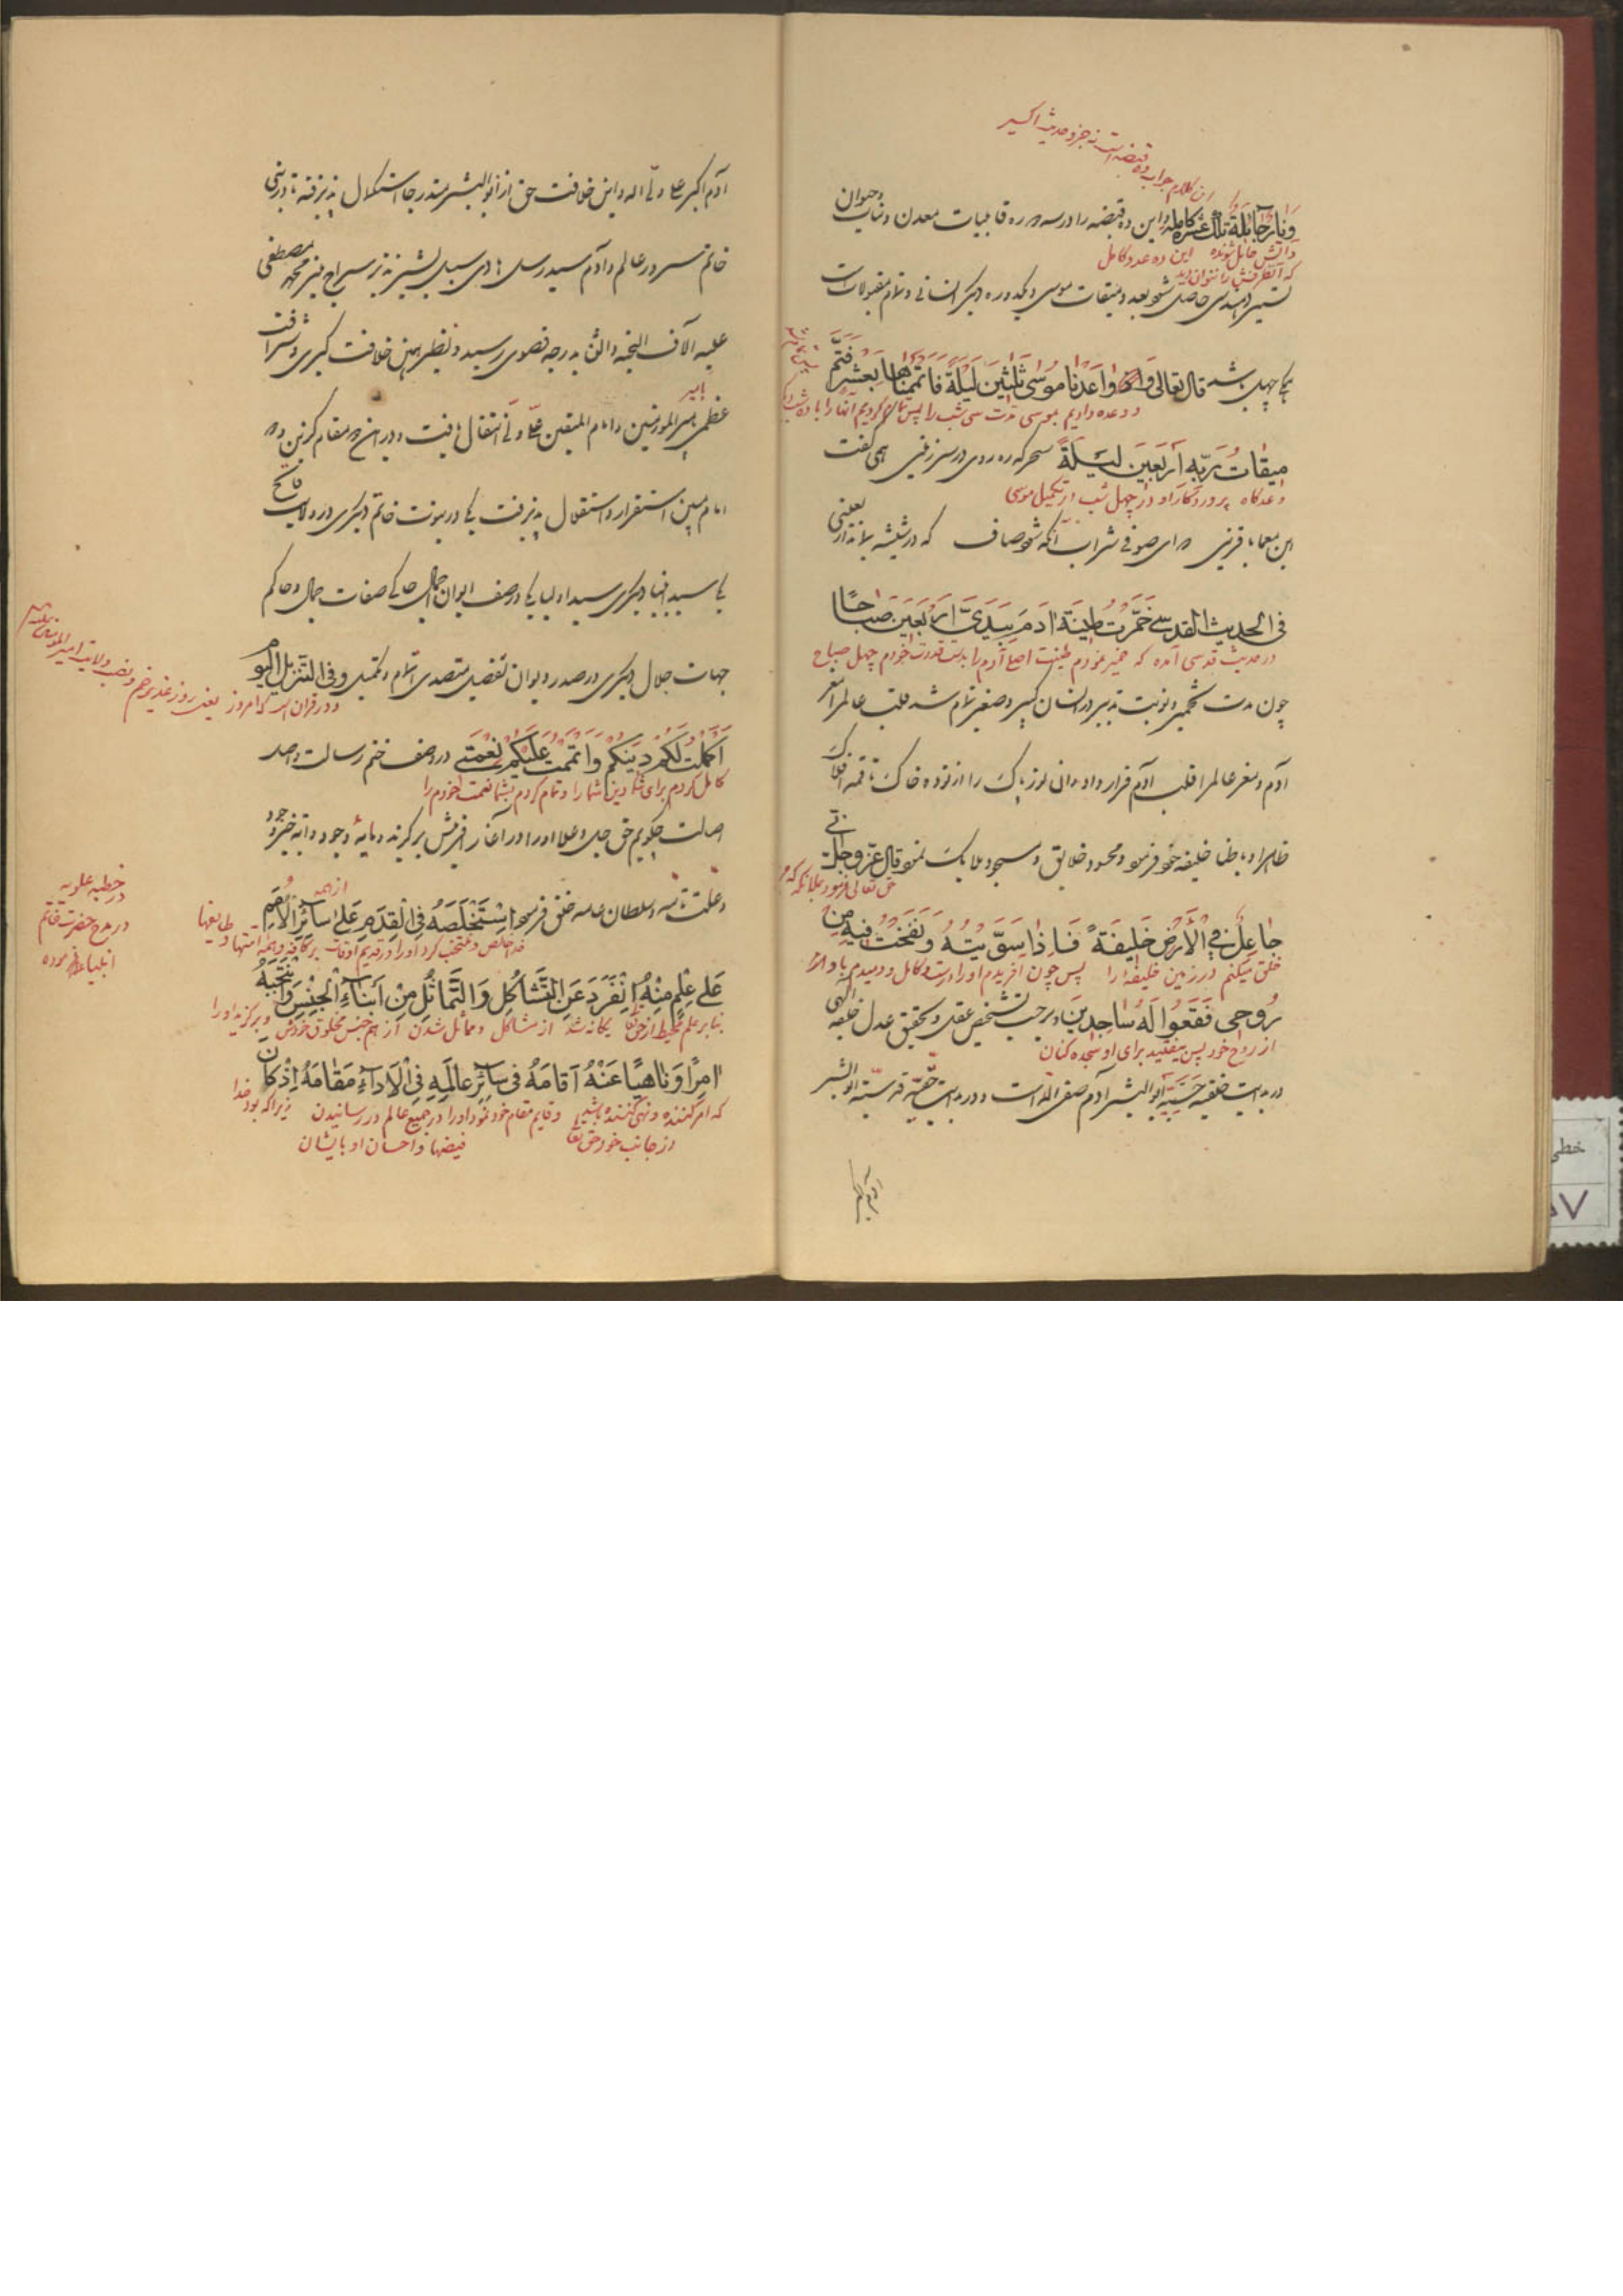 این کلام جواب ده قبضه است نه جزو حدیث اکسیر
وَنارٌ حٰائِلَةٌ تِلْكَ عَشَرَةٌ كٰامِلَةٌ و این ده قبضه را در سه دوره قابلیات معدن و نبات و حیوان
و آتش حایل شونده این ده عدد کامل
که آنطرفش را نتوان دید
حاصل شود بعدد میقات موسی و یکدوره دیگر انسانی و تمام مقبولات است
یکی چهل باشد قال تعالی وَ وٰاعَدْنٰا مُوسٰى ثَلٰثينَ لَيْلَةً فَاَتْمَمْنٰاهٰا بِعَشْرٍ فَتَمَّ
و وعده دادیم بموسی مدت سی شب را پس تمام کردیم آنها را با ده شب
میقٰاتُ رَبِّهِ اَرْبَعينَ لَيْلَةً سحرگه رهروی در سرزمینی همی گفت
وعدگاه پروردگار او در چهل شب در تکمیل موسی
این معما با قرینی که ای صوفی شراب آنگه شود صاف که در شیشه بماند اربعینی
فی الحدیث القدسی خَمَّرْتُ طینَةَ اٰدَمَ بِيَدَيَّ اَرْبَعينَ صَبٰاحًا
در حدیث قدسی آمده که خمیر نمودم طینت اصل آدم را بدست قدرت خودم چهل صباح
چون مدت تخمیر و نوبت تدبیر در انسان کبیر و صغیر تمام شد قلب عالم را مغز
آدم و مغز عالم را قلب آدم قرار داد و آن نور پاک را از توده خاک تا قمه افلاک
ظاهرا و باطنا خلیفه خود فرمود و محسود خلایق و مسجود ملایک نمود قال عزّ وجلّ اِنّی
حق تعالی فرمود بملائکه که من
جٰاعِلٌ فِي الْاَرْضِ خَليفَةً فَاِذٰا سَوَّيْتُهُ وَنَفَخْتُ فيهِ مِنْ
خلق میکنم در زمین خلیفه را پس چون آفریدم او را درست و کامل و دمیدم باو از
رُوحی فَقَعُوا لَهُ سٰاجِدينَ و برحسب تشخیص عقلی و تحقیق عدل خلیفه الهی
از روح خود پس بیفتید برای او سجده کنان
در بدایت خلقیه حسّیّه ابو البشر آدم صفی الله است و در بدایت حقیّه قدسیّه ابو البشر
آدم اکبر
آدم اکبر علی ولی اله و این خلافت حق از ابو البشر متدرجا استکمال پذیرفته تا در نبی
خاتم سرور عالم و آدم سید رسل هادی سبل بشیر نذیر سراج منیر محمد مصطفی
علیه آلاف التحیه والثنا بدرجه قصوی رسید و نظیر همین خلافت کبری و شرافت
عظمی بامیر المؤمنین و امام المتقین علی ولی انتقال یافت و در این دو مقام کریم و دو
امام مبین استقرار و استقلال پذیرفت یکی در نبوت خاتم دیگری در ولایت فاتح
یکی سید انبیا دیگری سید اولیا یکی در صف ایوان جمال حاکی صفات جمال و حاکم
جهات جلال دیگری در صدر دیوان تفصیل متصدی اتمام و تکمیل وفی التنزیل اَلْيَوْمَ
و در قران است که امروز یعنی روز غدیر خم و نصب ولایت امیر المؤمنین
اَكْمَلْتُ لَكُمْ دينَكُمْ وَاَتْمَمْتُ عَلَيْكُمْ نِعْمَتی در وصف ختم رسالت و اصل
کامل کردم برای شما دین شما را و تمام کردم بشما نعمت خودم را
اصالت چگویم حق جل و علا او را در آغاز افرینش برگزیده و مایهٔ وجود
و علت تامه و سلطان عامه خلق فرمود اِسْتَخْلَصَهُ فِي الْقِدَمِ عَلٰی سٰائِرِ الْاُمَمِ
خدا خالص و منتخب کرد او را در قدیم اوقات بر کافه و همه امتها و طایفها
از همه
در خطبه علویه
در مدح حضرت خاتم
انبیاء فرموده
عَلٰی عِلْمٍ مِنْهُ اِنْفَرَدَ عَنِ التَّشٰاكُلِ وَالتَّمٰاثُلِ مِنْ اَبْنٰاءِ الْجِنْسِ وَانْتَجَبَهُ
بنا بر علم محیط از حق تعالی یگانه شد از مشاکل و مماثل شدن از هم جنس مخلوق خودش و برگزید او را
اٰمِرًا وَنٰاهِيًا عَنْهُ اَقٰامَهُ في سٰائِرِ عٰالَمِهِ فِي الْاَدٰاءِ مَقٰامَهُ اِذْ كٰانَ
که امر کننده و نهی کننده باشد و قایم مقام خود نمود او را در جمیع عالم در رسانیدن زیرا که بود خدا
از جانب خود حق تعالی فیضها و احسان او بایشان
خطی